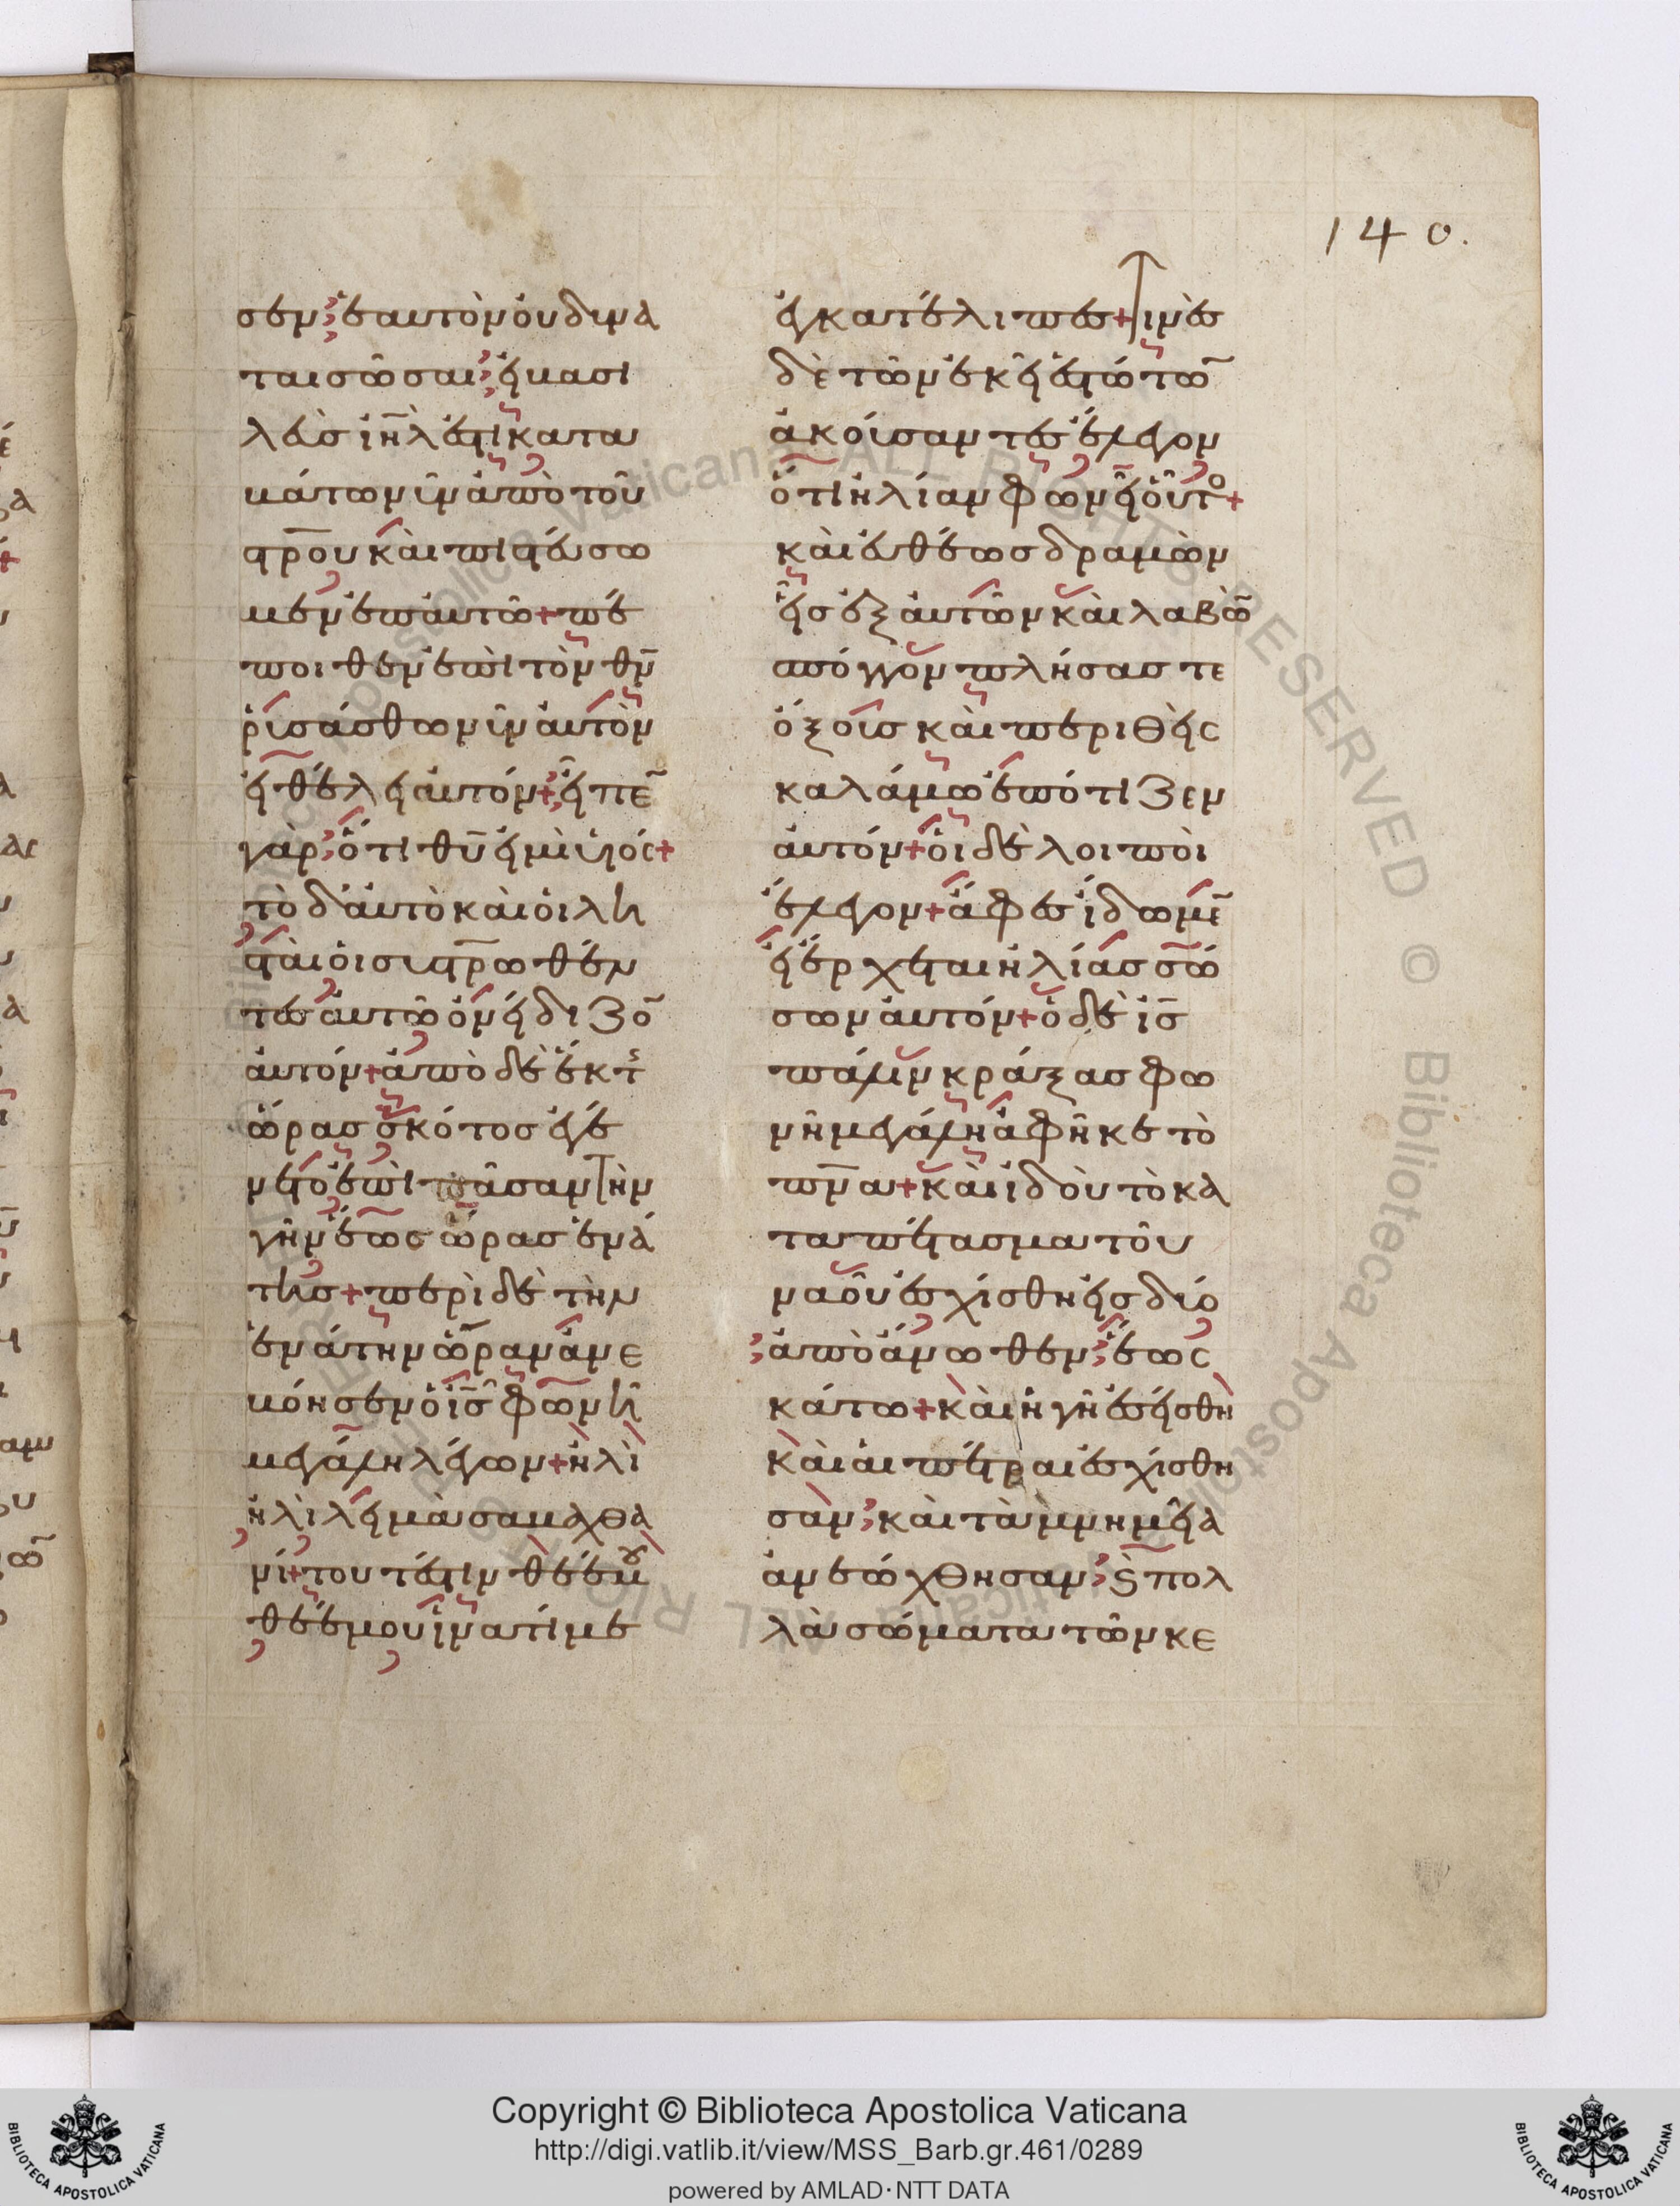 140.
σεν· ἑαυτὸν οὐ δύνα
ται σῶσαι· εἰ βασι
λεὺς ἰη̅λ ἐστὶ κατα
βάτω νῦν ἀπὸ τοῦ
στρ̅ου καὶ πιστεύσω
μεν ἐπ αὐτῶ + πέ
ποιθεν ἐπὶ τὸν θν̅
ῥυσάσθω νῦν αὐτὸν
εἰ θέλει αὐτόν + εἶπε̅
γὰρ· ὅτι θυ̅ εἰμὶ υἱός +
τὸ δ αὐτὸ καὶ οἱ λη
σταὶ οἱ συστρ̅ωθέν
τες αὐτῶ ὀνείδιζο̅
αὐτόν + ἀπὸ δὲ ἕκτς
ὥρας σκότος ἐγέ
νετο ἐπὶ πᾶσαν τὴν
γῆν ἕως ὥρας ἐνά
της + περὶ δὲ τὴν
ἐνάτην ὥραν ἀνε
βόησεν ὁ ις̅ φωνῆ
μεγάλη λέγων + ἠλὶ
ἠλὶ λειμὰ σαβαχθα
νί + τουτέστιν θεέ μου
θεέ μου ἱνατί με
ἐγκατέλιπες + τινὲς
δὲ τῶν ἐκεῖ ἑστώτω̅
ἀκούσαντες ἔλεγον
ὅτι ἠλίαν φωνεῖ οὗτο +
καὶ εὐθέως δραμὼν
εἷς ἐξ αὐτῶν καὶ λαβὼ̅
σπόγγον πλήσας τε
ὄξους καὶ περιθεὶς
καλάμω ἐπότιζεν
αὐτόν + οἱ δὲ λοιποὶ
ἔλεγον + ἄφες ἴδωμε̅
εἰ ἔρχεται ἠλίας σώ
σων αὐτόν + ὁ δὲ ις̅
πάλιν κράξας φω
νῆ μεγάλη ἀφῆκε τὸ
πν̅α + καὶ ἰδοὺ τὸ κα
ταπέτασμα τοῦ
ναοῦ ἐσχίσθη εἰς δύο
· ἀπὸ ἄνωθεν· ἕως
κάτω + καὶ ἡ γῆ ἐσείσθη
καὶ αἱ πέτραι ἐσχίσθη
σαν· καὶ τὰ μνημεῖα
ἀνεώχθησαν· ϗ πολ
λὰ σώματα τῶν κε
Copyright © Biblioteca Apostolica Vaticana
http://digi.vatlib.it/view/MSS_Barb.gr.461/0289
powered by AMLAD·NTT DATA
BIBLIOTECA APOSTOLICA VATICANA
BIBLIOTECA APOSTOLICA VATICANA